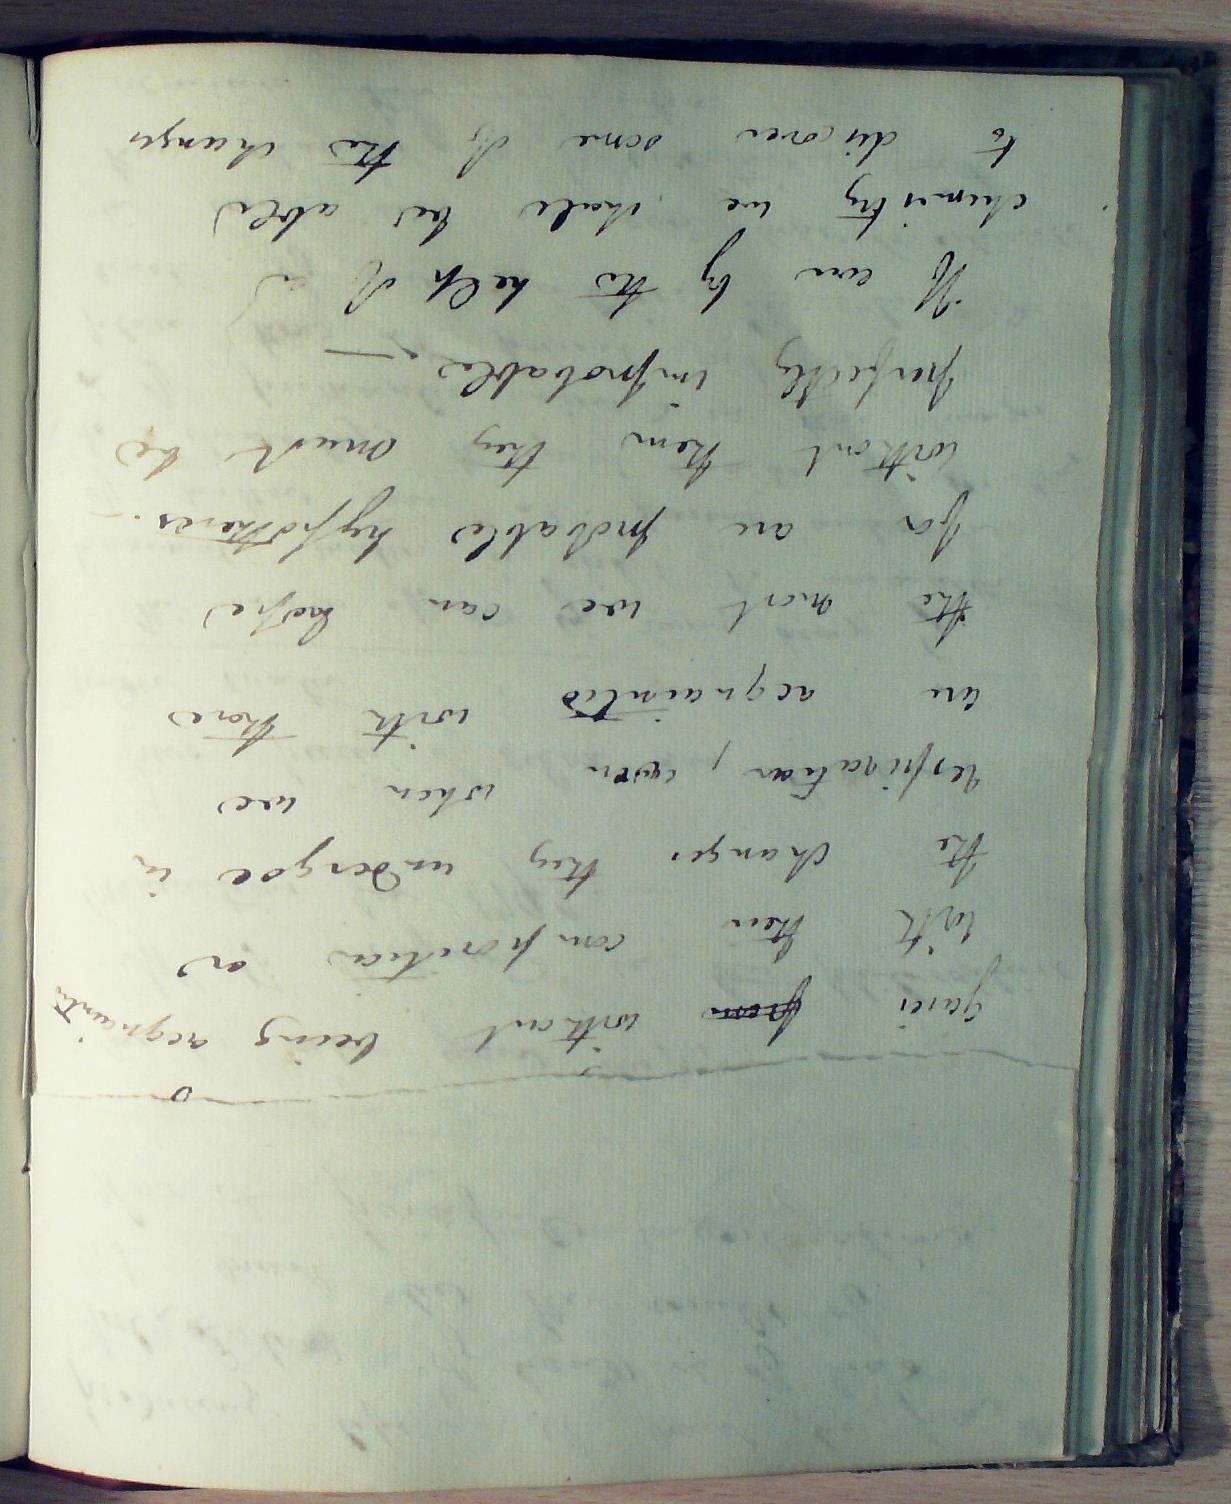 gases from without being acquainted
with their composition or
the changes they undergoe in
respiration, even when we
are acquainted with those
the most we can hope
for are probable hypotheses. —
without them they must be
perfectly improbable. —
If ever by the help of
chemistry we shall be able
to discover some of the changes